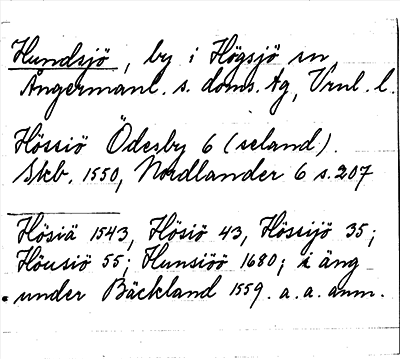 Hundsjö, by i Högsjö sn
Ångermanl. s. doms. tg, Vrnl. l.
Hössiö Ödesby 6 (seland).
Skb. 1550, Nordlander 6 s. 207
Hösiä 1543, Hösiö 43, Hössijö 35;
Höusiö 55; Hunsiöö 1680; i äng
under Bäckland 1559. a. a. anm.